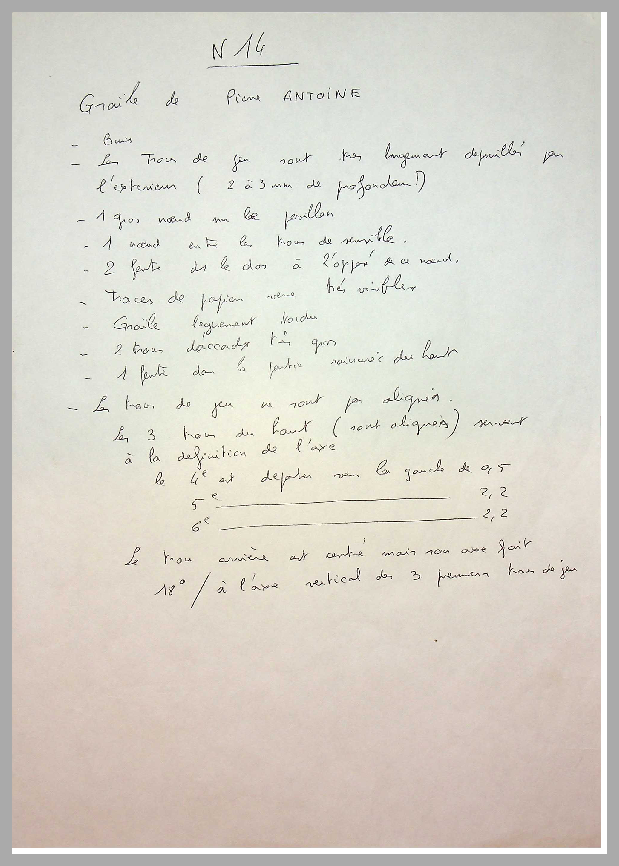 N 14
Graïle de Pierre ANTOINE
- Buis
- Les trous de jeu sont très largement dépouillés par
l'extérieur ( 2 à 3 mm de profondeur!)
- 1 gros nœud sur le pavillon
- 1 nœud entre les trous de sensible.
- 2 fente ds le dos à l'opposé de ce nœud.
- Traces de papier verre très visibles
- Graïle légèrement tordu
- 2 trous d'accords très gros
- 1 fente dans la partie rainurée du haut
- Les trous de jeu ne sont pas alignés.
Les 3 trous du haut ( sont alignés) servent
à la définition de l'axe
le 4e est déporté vers la gauche de 0,5
5e 2,2
6e 2,2
Le trou arrière est centré mais son axe fait
18° / à l'axe vertical des 3 premiers trous de jeu